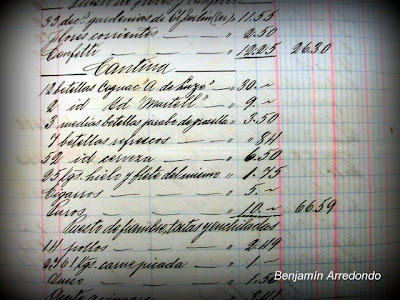 33 dec. gardenias de 11.55
Flores corrientes — " 2.50
Confetti — " 12.25 26.30
Cantina
12 botellas Cognac A. de Luze" — " 30. ~
2 id id "Martell" — " 9. ~
3 medias botellas jarabe de grosella " 3.50
7 botellas refrescos — " " 84
52 id cerveza — " 6.50
25 kgs. hielo y flete del mismo " 1.75
Cigarros — " 5. ~
Puros — " 10. ~ 66.59
Gasto de fiambre, tortas y enchiladas
14 pollos — " 2.49
kgs. carne picada — " 1. ~
Queso — " 1.50
2.41
Benjamín Arredondo